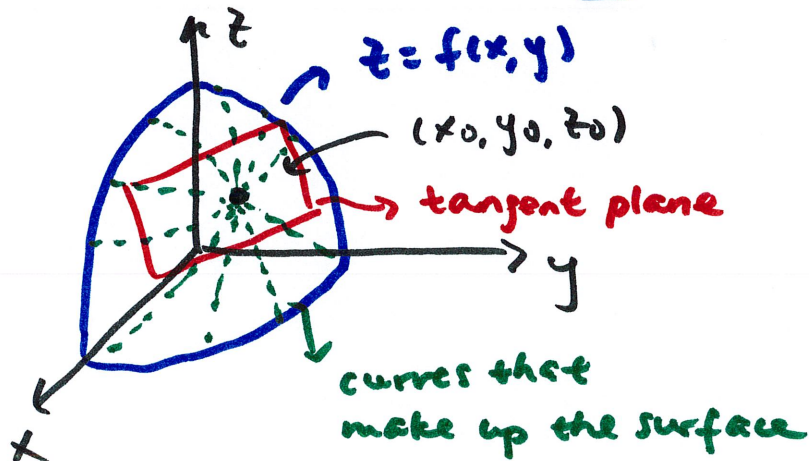 z
z = f(x, y)
(x0, y0, z0)
tangent plane
y
curves that
make up the surface
x